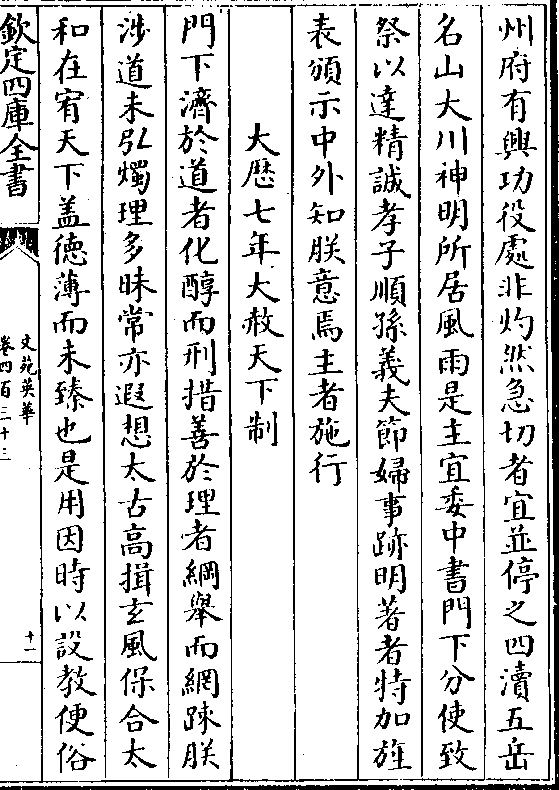 州府有興功役處非灼然急切者宜並停之四瀆五岳
名山大川神明所居風雨是主宜委中書門下分使致
祭以達精誠孝子順孫義夫節婦事跡明著者特加旌
表頒示中外知朕意焉主者施行
大厯七年大赦天下制
門下濟於道者化醇而刑措善於理者綱舉而網踈朕
涉道未弘燭理多昧常亦遐想太古高揖玄風保合太
和在宥天下盖德薄而未臻也是用因時以設教便俗
欽定四庫全書
文苑英華
卷四百三十三
十一